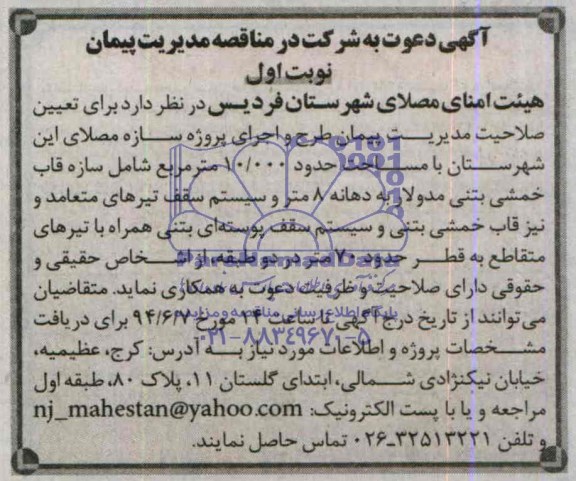 آگهی دعوت به شرکت در مناقصه مدیریت پیمان
نوبت اول
هیئت امنای مصلای شهرستان فردیس در نظر دارد برای تعیین
صلاحیت مدیریت پیمان طرح و اجرای پروژه سازه مصلای این
شهرستان با مساحت حدود ۱۰/۰۰۰ مترمربع شامل سازه قاب
خمشی بتنی مدولار به دهانه ۸ متر و سیستم سقف تیرهای متعامد و
نیز قاب خمشی بتنی و سیستم سقف پوسته‌ای بتنی همراه با تیرهای
متقاطع به قطر حدود ۷۰ متر در دو طبقه، از اشخاص حقیقی و
حقوقی دارای صلاحیت و ظرفیت دعوت به همکاری نماید. متقاضیان
می‌توانند از تاریخ درج آگهی تا ساعت ۱۴ مورخ ۹۴/۶/۷ برای دریافت
پایگاه اطلاع رسانی مناقصه و مزایده
۰۲۱-۸۸۳۴۹۶۷۰-۵
مشخصات پروژه و اطلاعات مورد نیاز به آدرس: کرج، عظیمیه،
خیابان نیکنژادی شمالی، ابتدای گلستان ۱۱، پلاک ۸۰، طبقه اول
مراجعه و یا با پست الکترونیک: nj_mahestan@yahoo.com
و تلفن ۳۲۵۱۳۲۲۱-۰۲۶ تماس حاصل نمایند.